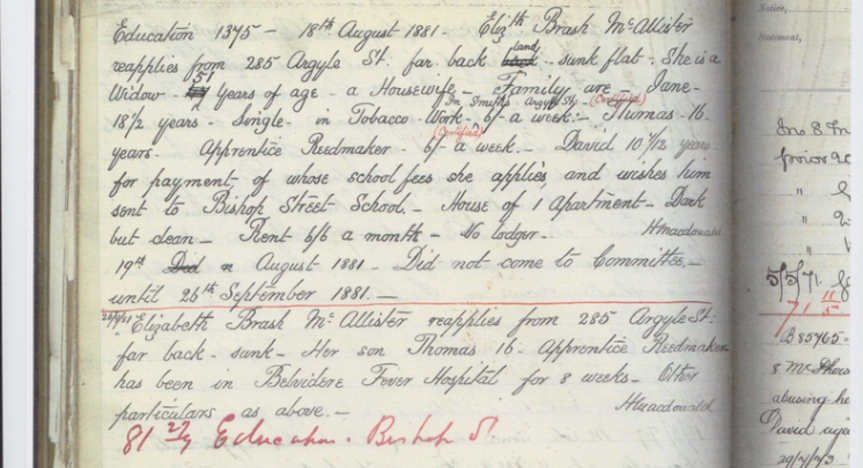 Education 1375 - 18th August 1881 - Elizth Brash McAllister
reapplies from 285 Argyle St. far back land - sunk flat - She is a
Widow - 51 years of age - a Housewife - Family are Jane -
18 1/2 years - Single - in Tobacco Work - In Smith's - Argyle St - 6/- a week - (Certified) Thomas - 16 -
years - Apprentice Reedmaker - (Certified) 6/- a week. - David 10 9/12 years
for payment, of whose school fees she applies, and wishes him
sent to Bishop Street School. - House of 1 apartment - Dark
but clean - Rent 6/6 a month - No lodger -
HMacdonald
19th Did n August 1881 - Did not come to Committee. -
until 26th September 1881. -
Elizabeth Brash McAllister reapplies from 285 Argyle St:
far back - sunk - Her son Thomas 16. Apprentice Reedmaker
has been in Belvidere Fever Hospital for 8 weeks - Other
particulars as above. -
HMacdonald
81 27/9 Education - Bishop St
Notice,
Statement,
prior
5/5/71.
71 11/5
B 85765 -
abusing he
David aged
29/4/73